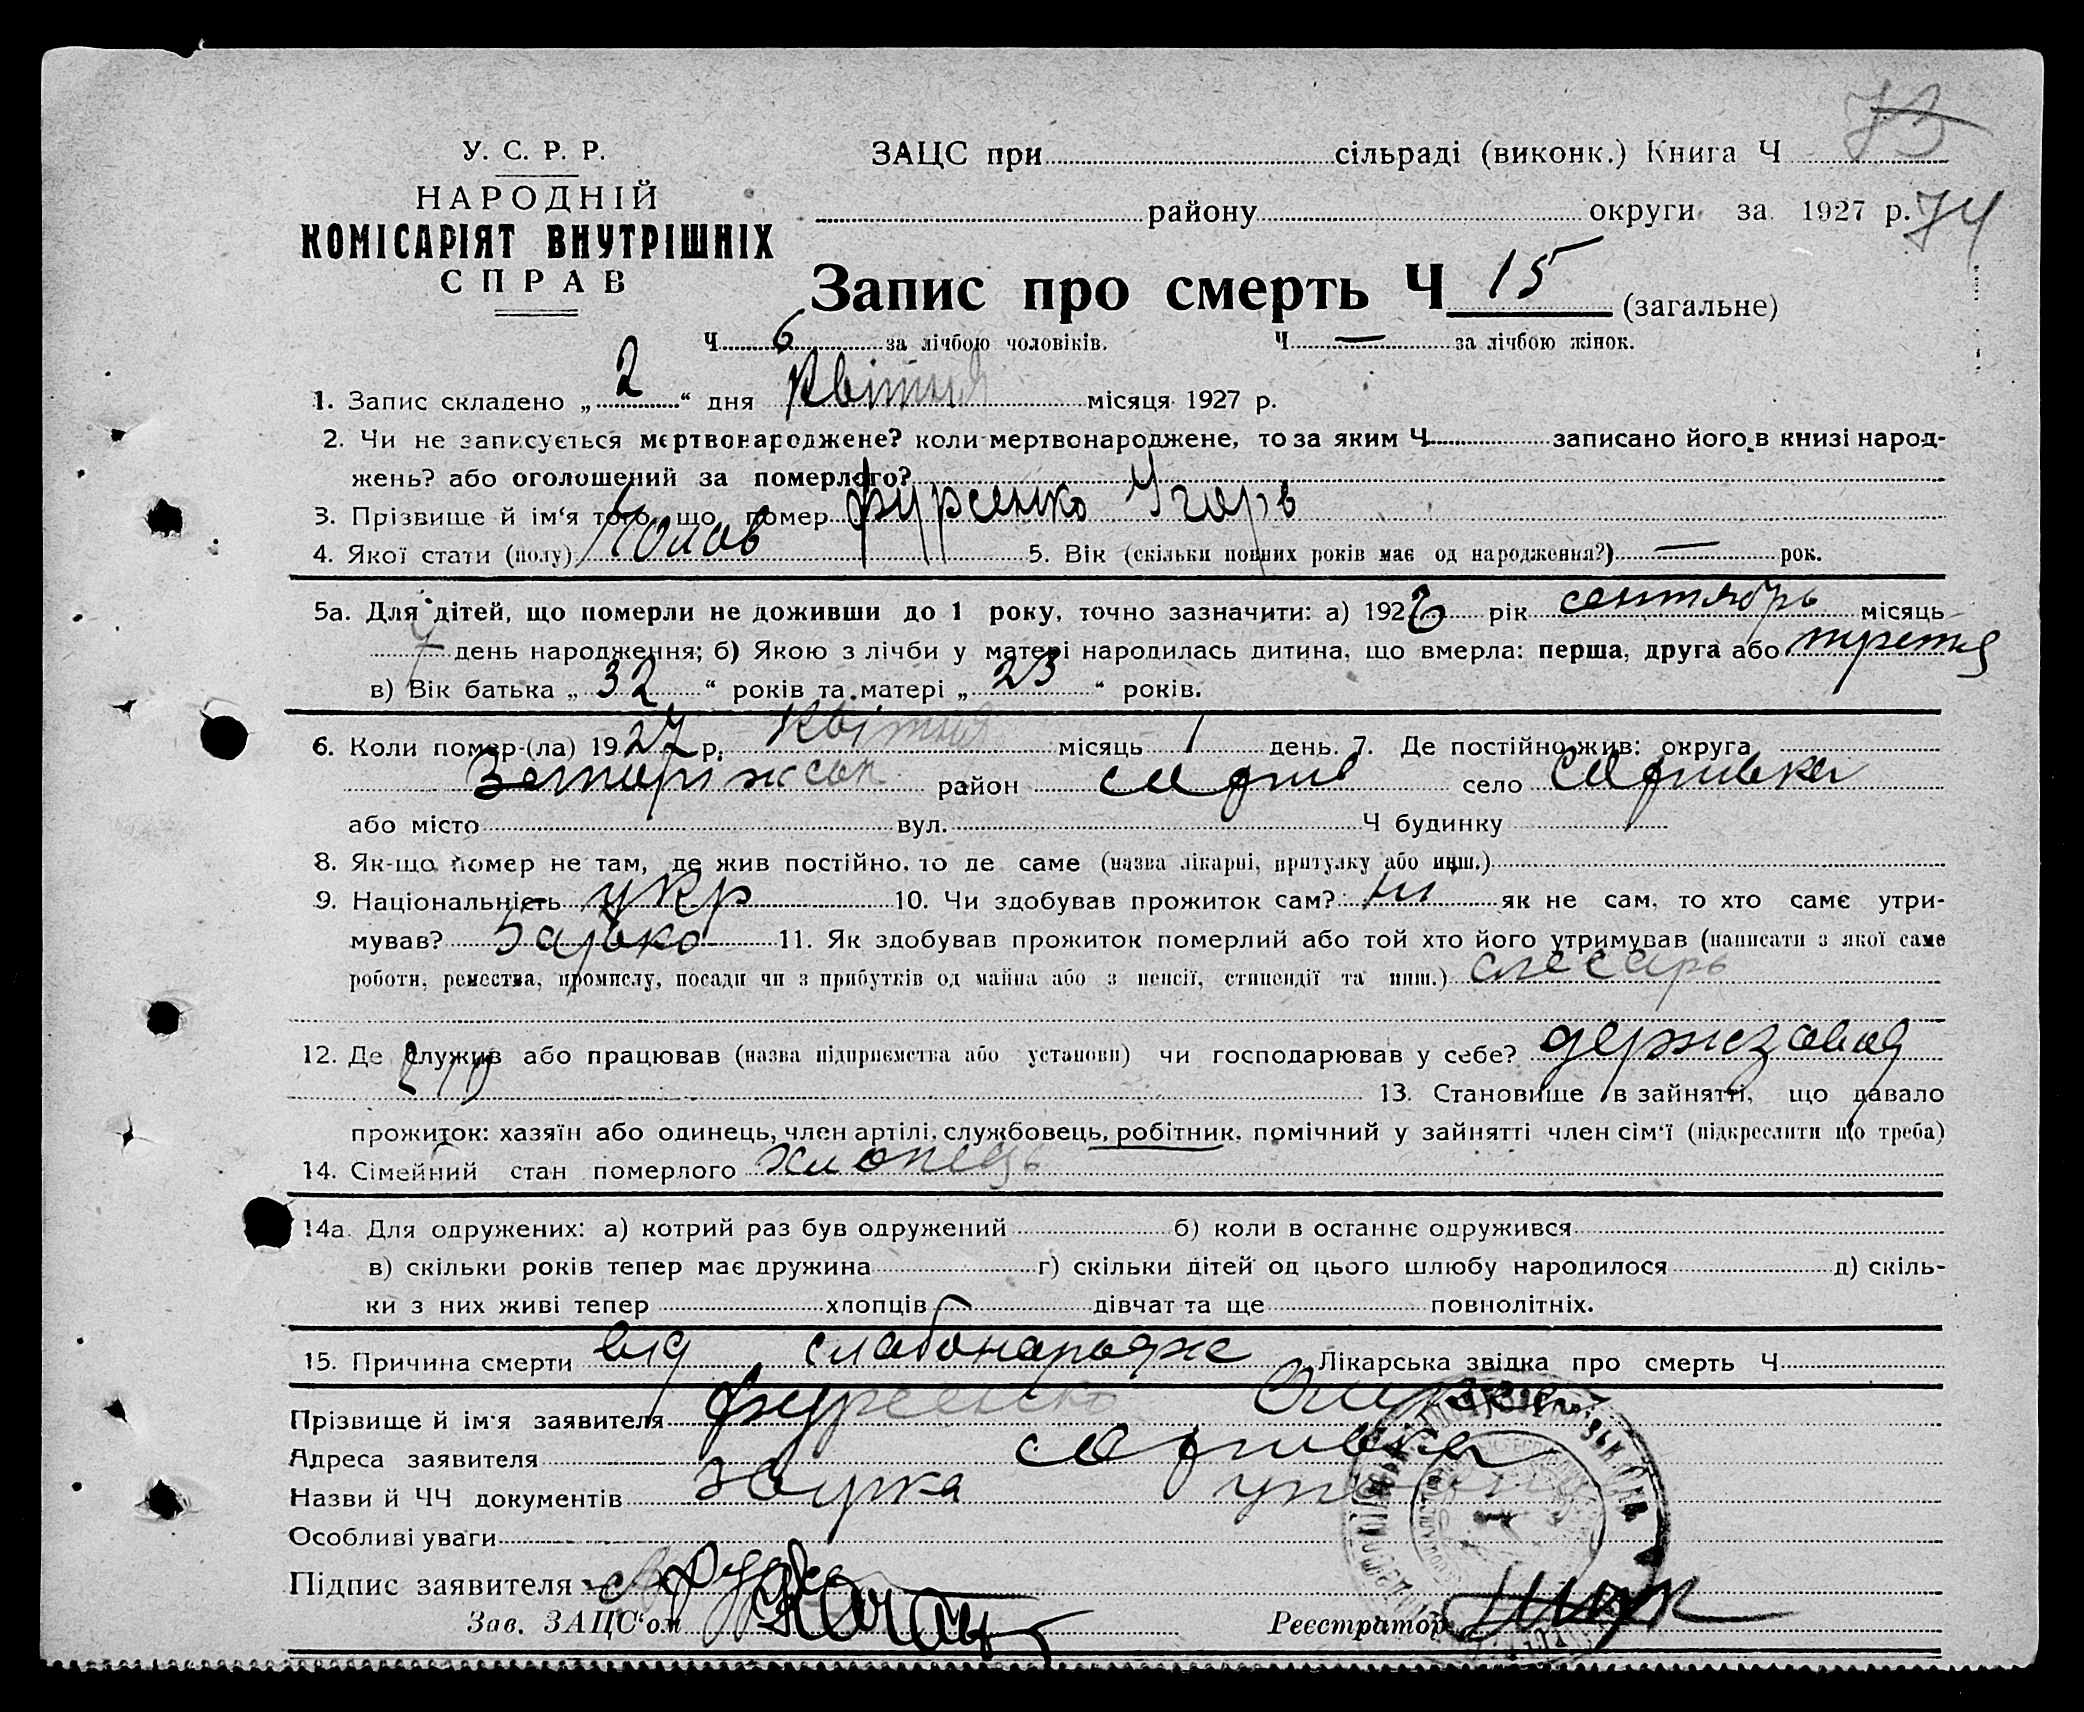 73
У. С. Р. Р.
НАРОДНІЙ
КОМІСАРІЯТ ВНУТРІШНІХ
СПРАВ
ЗАЦС при сільраді (виконк.) Книга Ч
району округи за 1927 р. 74
Запис про смерть Ч 15 (загальне)
Ч 6 за лічбою чоловіків. Ч — за лічбою жінок.
1. Запис складено „ 2 “ дня Квітня місяця 1927 р.
2. Чи не записується мертвонароджене? коли мертвонароджене, то за яким Ч записано його в книзі народ-
жень? або оголошений за померлого?
3. Прізвище й ім‘я того, що помер Фурсенко Ігорь
4. Якої стати (полу) 5. Вік (скільки повних років має од народження?) — рок.
5а. Для дітей, що померли не доживши до 1 року, точно зазначити: а) 1926 рік сентябрь місяць
7 день народження; б) Якою з лічби у матері народилась дитина, що вмерла: перша, друга або третя
в) Вік батька „ 32 “ років та матері „ 23 “ років.
6. Коли помер-(ла) 19 27 р. Квітня місяць 1 день. 7. Де постійно жив: округа
район село
або місто вул. Ч будинку
8. Як-що помер не там, де жив постійно, то де саме (назва лікарні, притулку або инш.)
9. Національність укр 10. Чи здобував прожиток сам? ні як не сам, то хто саме утри-
мував? батько 11. Як здобував прожиток померлий або той хто його утримував (написати з якої саме
роботи, ремества, промислу, посади чи з прибутків од майна або з пенсії, стипендії та инш.) слесарь
12. Де служив або працював (назва підприємства або установи) чи господарював у себе? держзавод
13. Становище в зайнятті, що давало
прожиток: хазяїн або одинець, член артілі, службовець, робітник, помічний у зайнятті член сім‘ї (підкреслити що треба)
14. Сімейний стан померлого хлопець
14а. Для одружених: а) котрий раз був одружений б) коли в останнє одружився
в) скільки років тепер має дружина г) скільки дітей од цього шлюбу народилося д) скіль-
ки з них живі тепер хлопців дівчат та ще повнолітніх.
15. Причина смерти від слабонародже Лікарська звідка про смерть Ч
Прізвище й ім‘я заявителя Фурсенко
Адреса заявителя
Назви й ЧЧ документів
Особливі уваги
Підпис заявителя
Зав. ЗАЦС‘ом Реєстратор